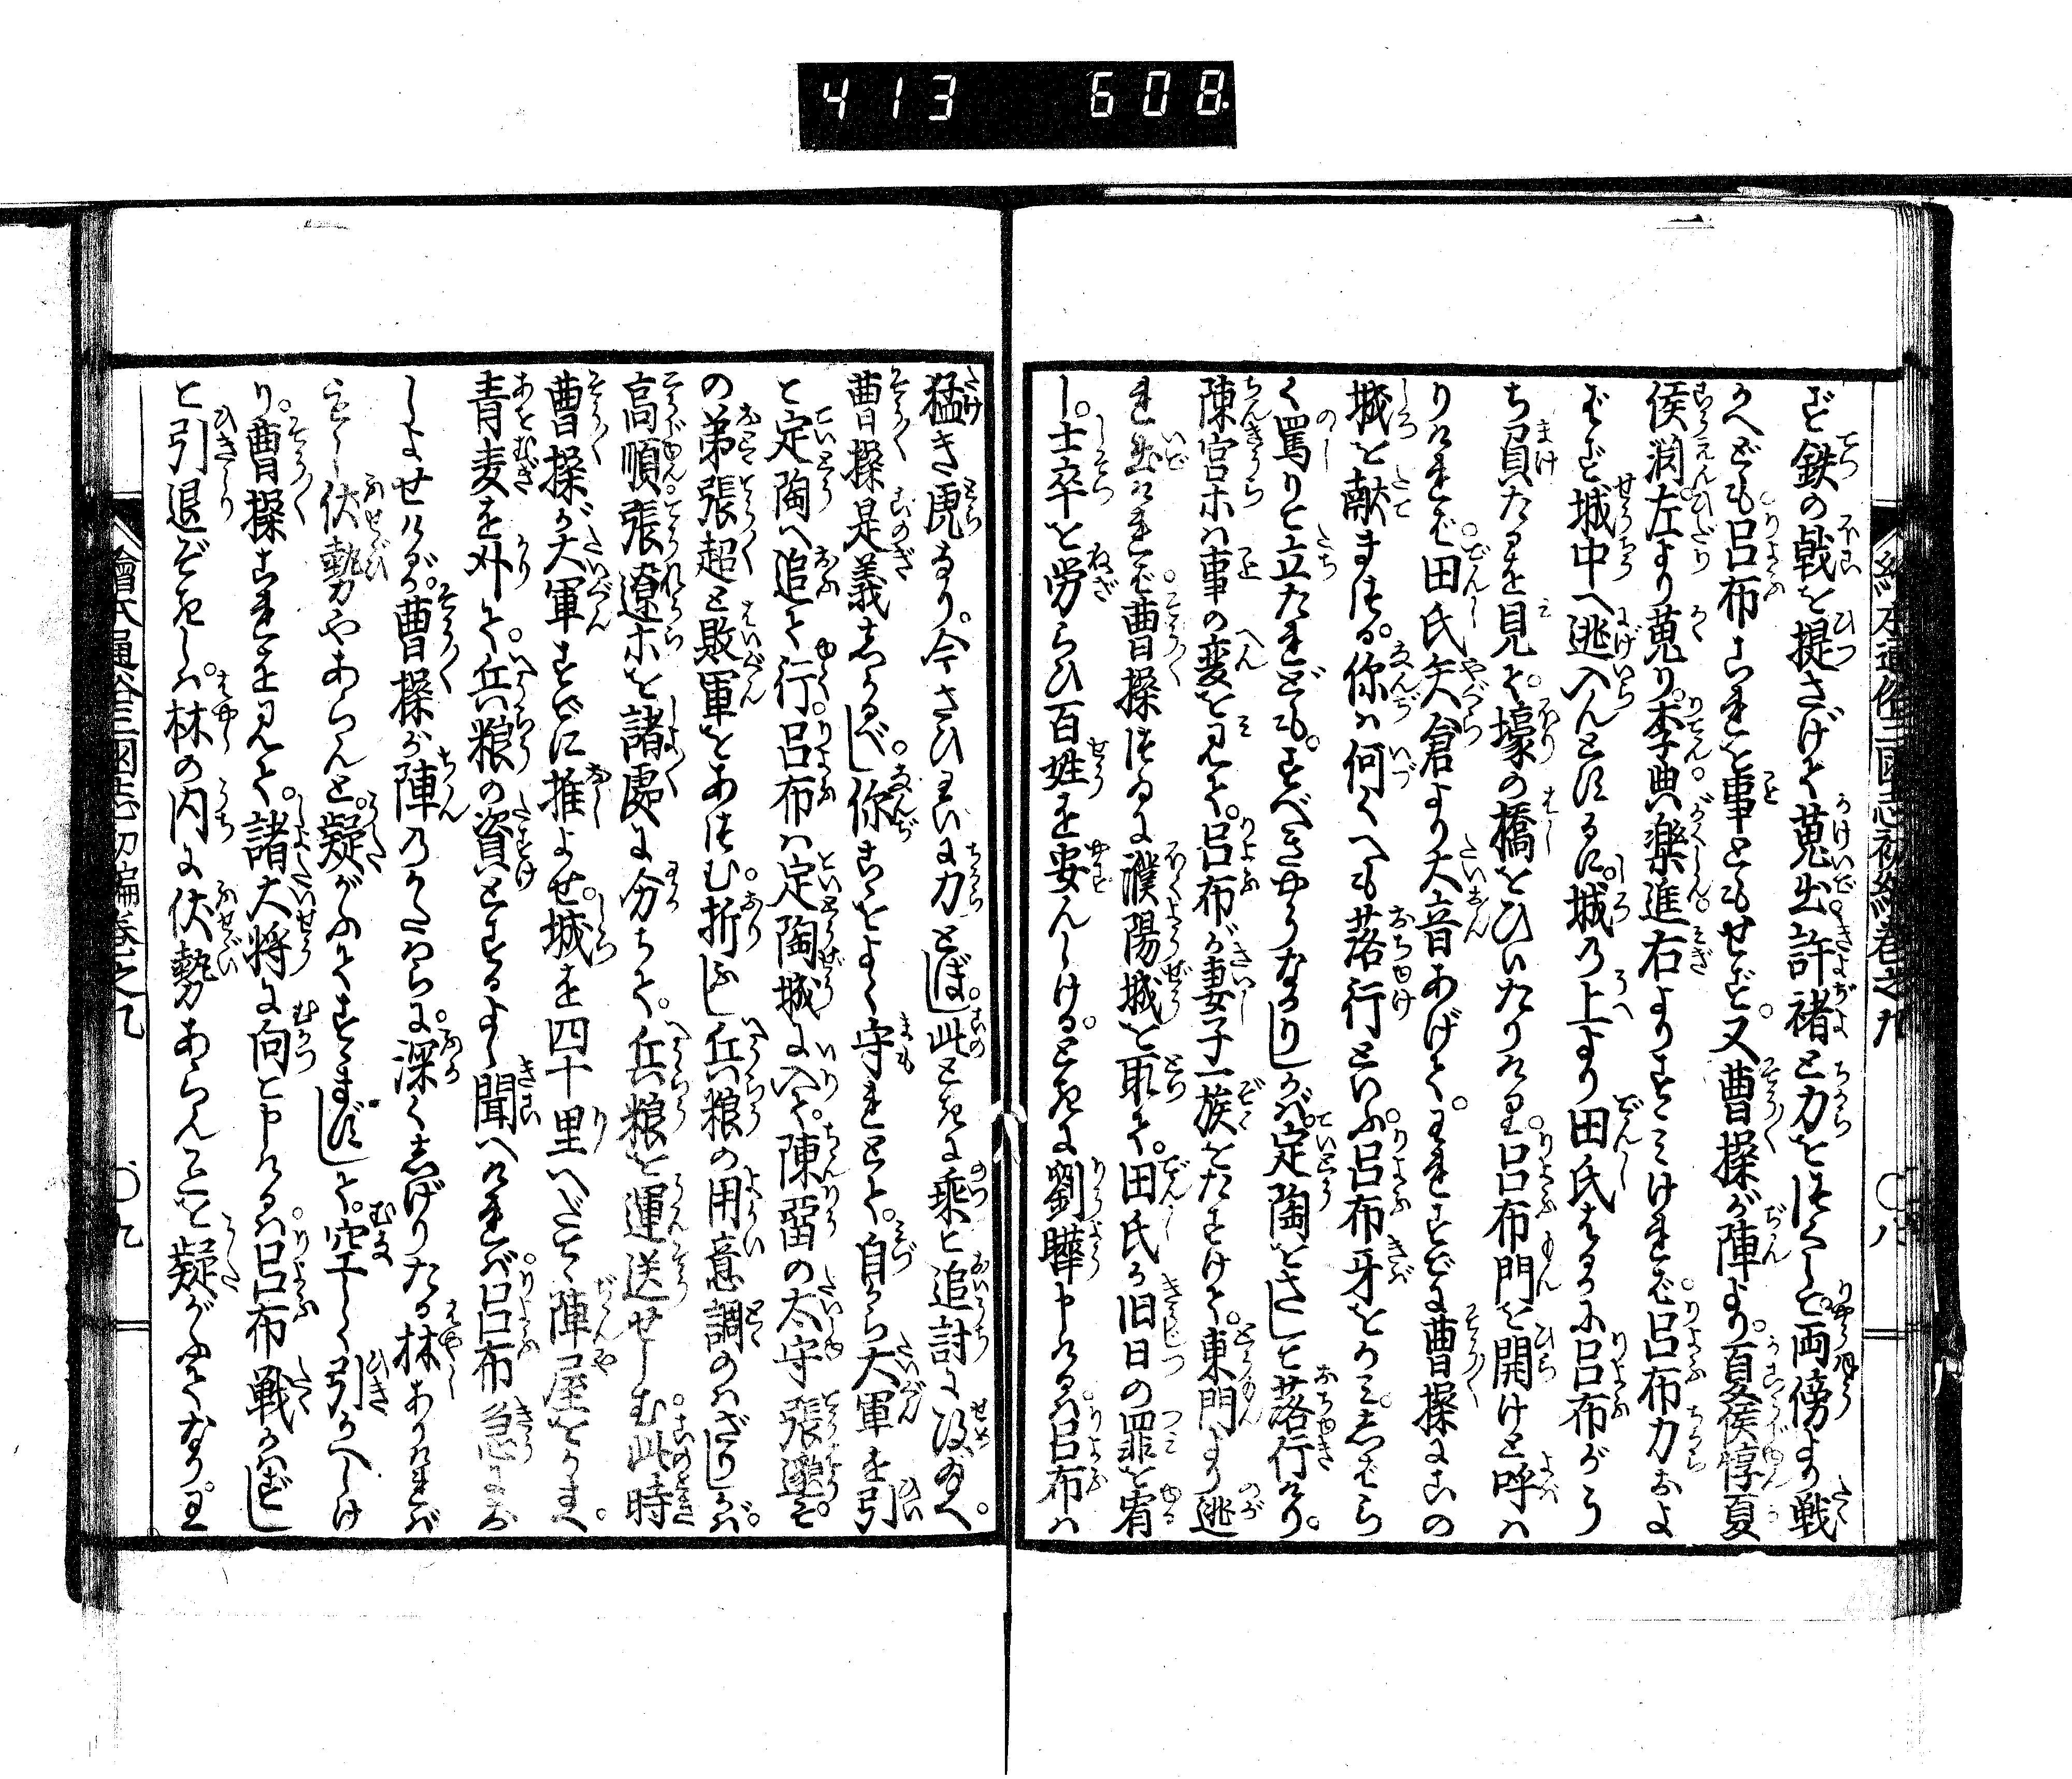 413 608
ず鉄の戟を提さげて蒐出許褚と力をつくして両傍より戦
かへども呂布これを事ともせず又曹操が陣より夏侯惇夏
侯渕左より蒐り李典楽進右よりすゝみければ呂布力およ
ばず城中へ逃入んとするに城の上より田氏はるかに呂布がう
ち負たるを見て壕の橋をひいたりける呂布門を開けと呼は
りければ田氏矢倉より大音あげてわれすでに曹操にこの
城を献まつる你は何くへも落行といふ呂布牙をかみしばら
く罵りて立たれどもすべきやうなかりしかば定陶をさして落行けり
陳宮ホは事の変を見て呂布が妻子一族をたすけて東門より逃
れ出ければ曹操つゐに濮陽城を取て田氏が旧日の罪を宥
し士卒を労らひ百姓を安んしけるときに劉曄申けるは呂布は
猛き虎なり今さひわい力とぼし此ときに乗て追討に攻給へ
曹操是義しかるべし你こゝをよく守れとて自から大軍を引
て定陶へ追て行呂布は定陶城に入て陳留の太守張邈そ
の弟張超と敗軍をあつむ折ふし兵粮の用意調のはざりしかば
高順張遼ホを諸處に分ちて兵粮を運送せしむ此時
曹操が大軍すでに推よせ城を四十里へだてゝ陣屋をかまへ
青麦を刈て兵粮の資とするよし聞へければ呂布急にお
しよせけるが曹操が陣のかたはらに深くしげりたる林ありければ
もし伏勢やあらんと疑がふてすゝまずして空しく引かへしけ
り曹操これを見て諸大将に向て申けるは呂布戦かはずし
て引退ぞきしは林の内に伏勢あらんことを疑がふてなりわ